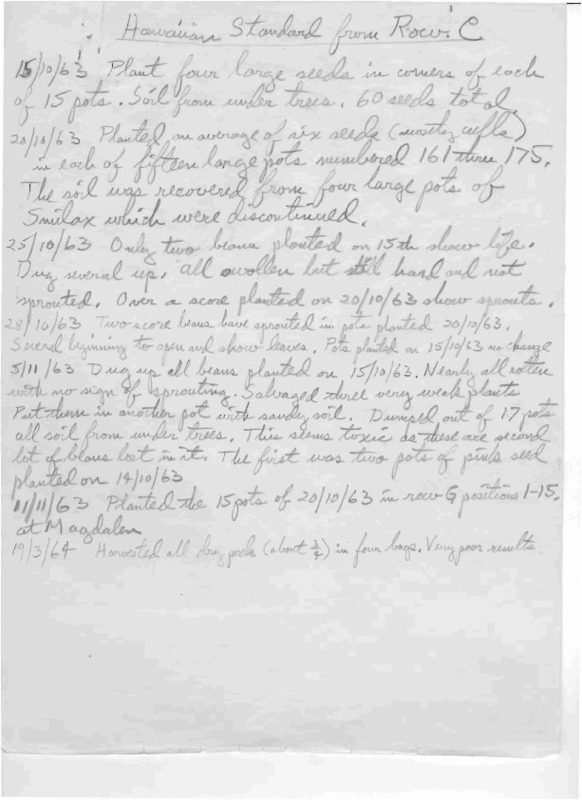 Hawaiian Standard from Row C
15/10/63 Plant four large seeds in corners of each
of 15 pots. Soil from under trees. 60 seeds total
20/10/63 Planted an average of six seeds (mostly culls)
in each of fifteen large pots numbered 161 thru 175.
The soil was recovered from four large pots of
Smilax which were discontinued.
25/10/63 Only two beans planted on 15th show life.
Dug several up. All swollen but still hard and not
sprouted. Over a score planted on 20/10/63 show sprouts.
28/10/63 Two score beans have sprouted in pots planted 20/10/63.
Several beginning to open and show leaves. Pots planted on 15/10/63 no change
5/11/63 Dug up all beans planted on 15/10/63. Nearly all rotten
with no sign of sprouting. Salvaged three very weak plants
Put them in another pot with sandy soil. Dumped out of 17 pots
all soil from under trees. This seems toxic as these are second
lot of beans lost in it. The first was two pots of pink seed
planted on 14/10/63
11/11/63 Planted the 15 pots of 20/10/63 in row G positions 1-15.
at Magdalen
19/3/64 Harvested all dry pods (about ) in four bags. Very poor results